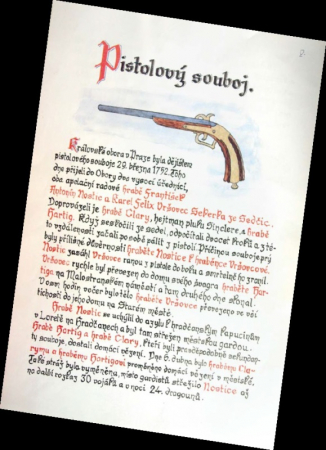 2
Pistolový souboj.
Královská obora v Praze byla dějištěm
pistolového souboje 29. března 1752. Toho
dne přijeli do Obory dva vysocí úředníci,
oba apelační radové hrabě František
Antonín Nostic a Karel Felix Vršovec Sekerka ze Sedčic.
Doprovázeli je hrabě Clary, hejtman pluku Sinclere a hrabě
Hartig. Když seskočili ze sedel, odpočítali dvacet kroků a z té-
to vzdálenosti začali po sobě pálit z pistolí. Příčinou souboje prý
byly přílišné důvěrnosti hraběte Nostice k hraběnce Vršovcové.
Nostic zasáhl Vršovce ranou z pistole do boku a smrtelně ho zranil.
Vršovec rychle byl převezen do domu svého švagra hraběte Har-
tiga na Malostranském náměstí a tam druhého dne skonal.
V osm hodin večer bylo tělo hraběte Vršovce převezeno ve vší
tichosti do jeho domu na Starém městě.
Hrabě Nostic se uchýlil do azylu k hradčanským kapucínům
v Loretě na Hradčanech a byl tam střežen městskou gardou.
Hrabě Hartig a hrabě Clary, kteří byli pravděpodobně sekundan-
ty souboje, dostali domácí vězení. Dne 6. dubna bylo hraběnu Cla-
rymu a hraběnu Hartigovi proměněno domácí vězení v městské.
Také stráž byla vyměněna, místo gardistů střežilo Nostice až
na další rozkaz 30 vojáků a v noci 24 dragounů.